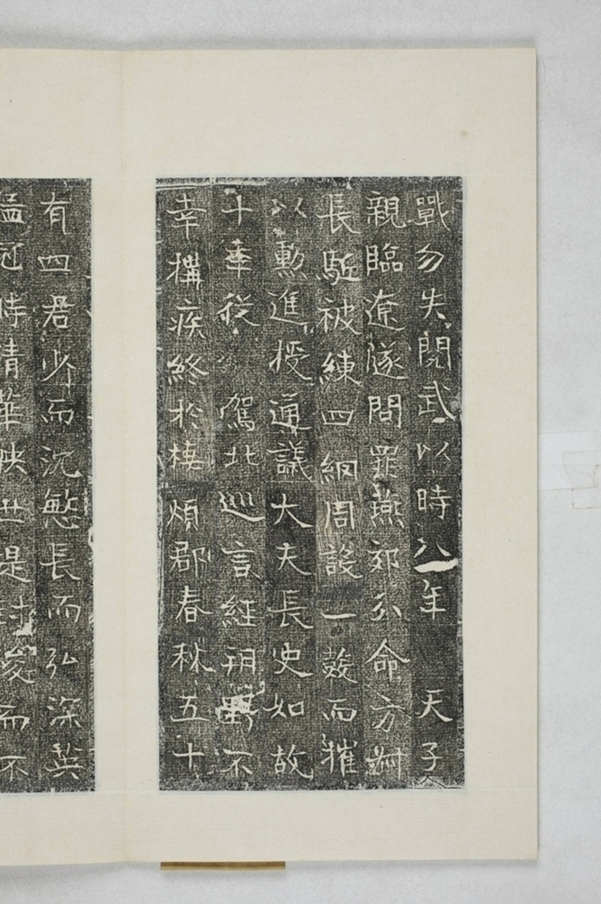 戰勿失閱武以時八年　天子
親臨遼隧問罪燕郊公命方
長驅被練四網周設一鼓而摧
以勳進授通議大夫長史如故
十年從　駕北巡言經朔野不
幸搆疾終於樓煩郡春秋五十
有四君少而沉慜長而弘深英
猛冠時精華映世是